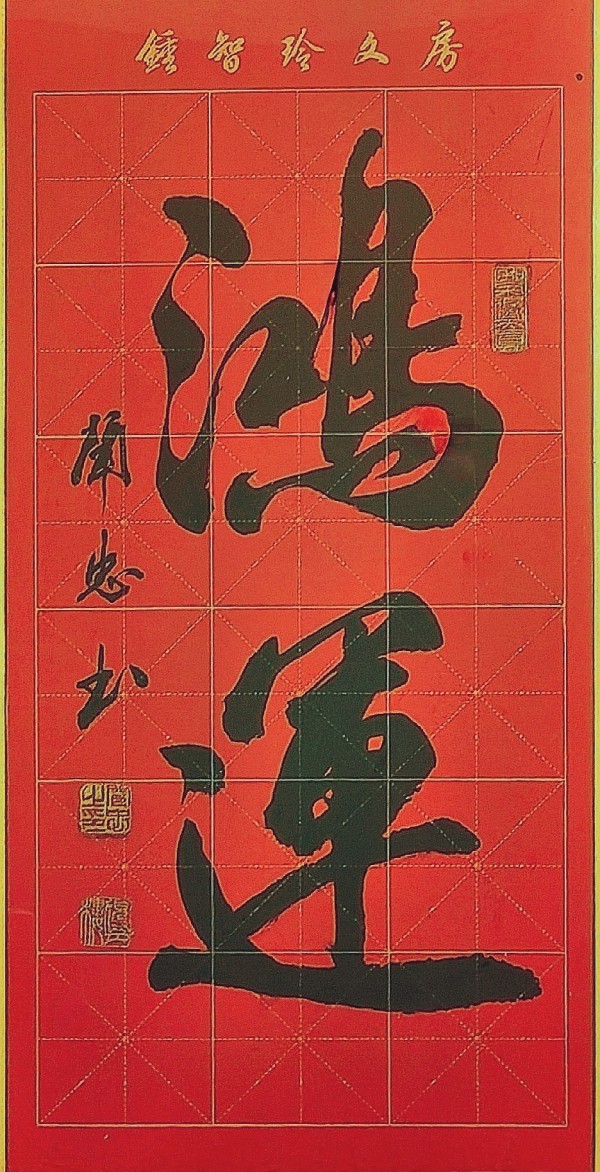 鍾智玲文房
鴻運
蘭忠书